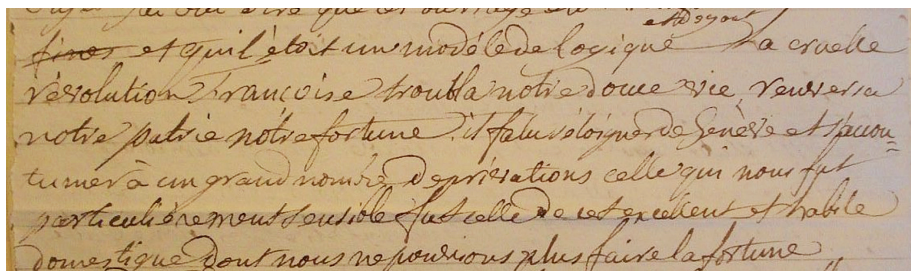 que cet ouvrage
et de gout
finos et qu'il etoit un modéle de logique La cruelle
révolution Francoise troubla notre douce vie, renversa
notre patrie notre fortune. il falut s'éloigner de Genève et s'accou=
tumer à un grand nombre de privations celle qui nous fut
particulièrement sensible fut celle de cet excellent et habile
domestique dont nous ne pouvions plus faire la fortune